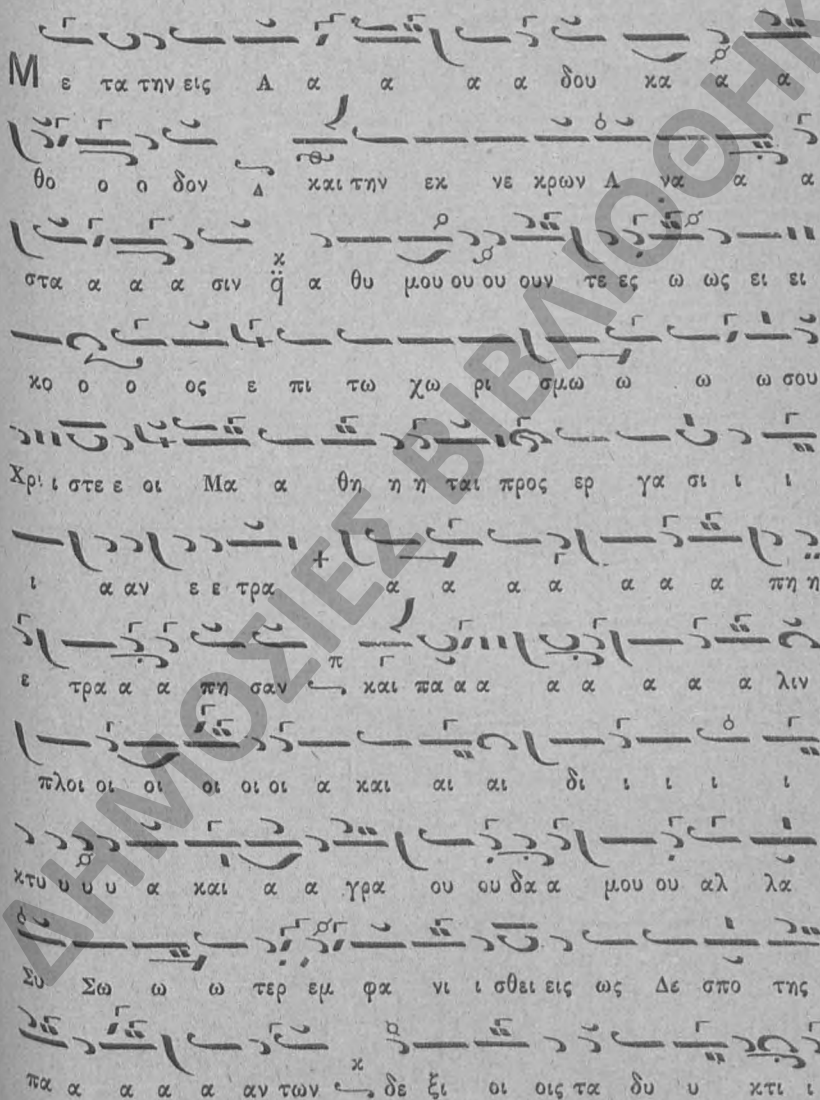 Μ ε τα την εις Α α α α α δου κα α α
θο ο ο δον Δ και την εκ νε κρων Α να α α
στα α α α σιν κ q̈ α θυ μου ου ου ουν τε ες ω ως ει ει
κο ο ο ος ε πι τω χω ρι σμω ω ω ω σου
Χρι ι στε ε οι Μα α θη η η ται προς ερ γα σι ι ι
ι α αν ε ε τρα α α α α α α α πη η
ε τρα α α πη σαν π και πα α α α α α α α λιν
πλοι οι οι οι οι οι α και αι αι δι ι ι ι ι
κτυ υ υ υ α και α α γρα ου ου δα α μου ου αλ λα
Συ Σω ω ω τερ εμ φα νι ι σθει εις ως Δε σπο της
πα α α α α αν των κ δε ξι οι οις τα δυ υ κτι ι
ΔΗΜΟΣΙΕΣ ΒΙΒΛΙΟΘΗΚ